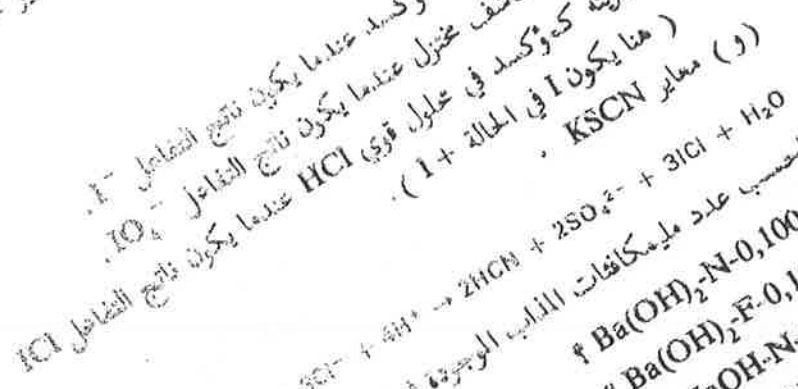 ـؤكسد عندما يكون ناتج التفاعل I⁻.
ـف مختزل عندما يكون ناتج التفاعل IO₄⁻.
كمؤكسد في محلول قوي HCl عندما يكون ناتج التفاعل ICl
( هنا يكون I في الحالة + 1 ).
( و ) معاير KSCN .
3Cl⁻ + 4H⁺ → 2HCN + 2SO₄²⁻ + 3ICl + H₂O
احسب عدد مليمكافئات المذاب الموجودة
Ba(OH)₂-N-0,100
Ba(OH)₂-F-0,1
OH-N-